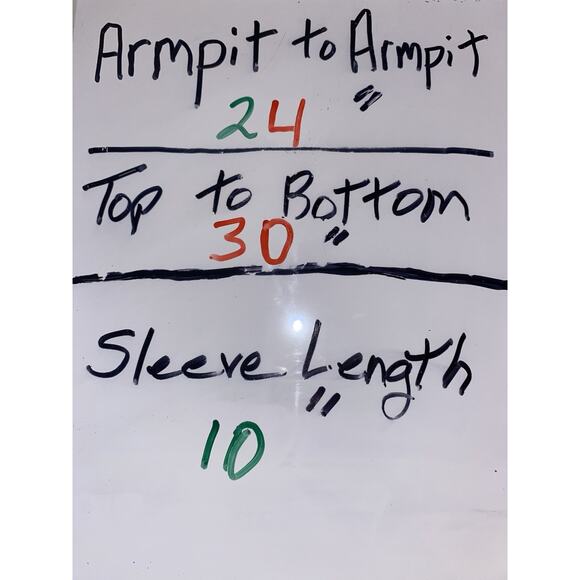 Armpit to Armpit
24 "
Top to Bottom
30 "
Sleeve Length
10 "